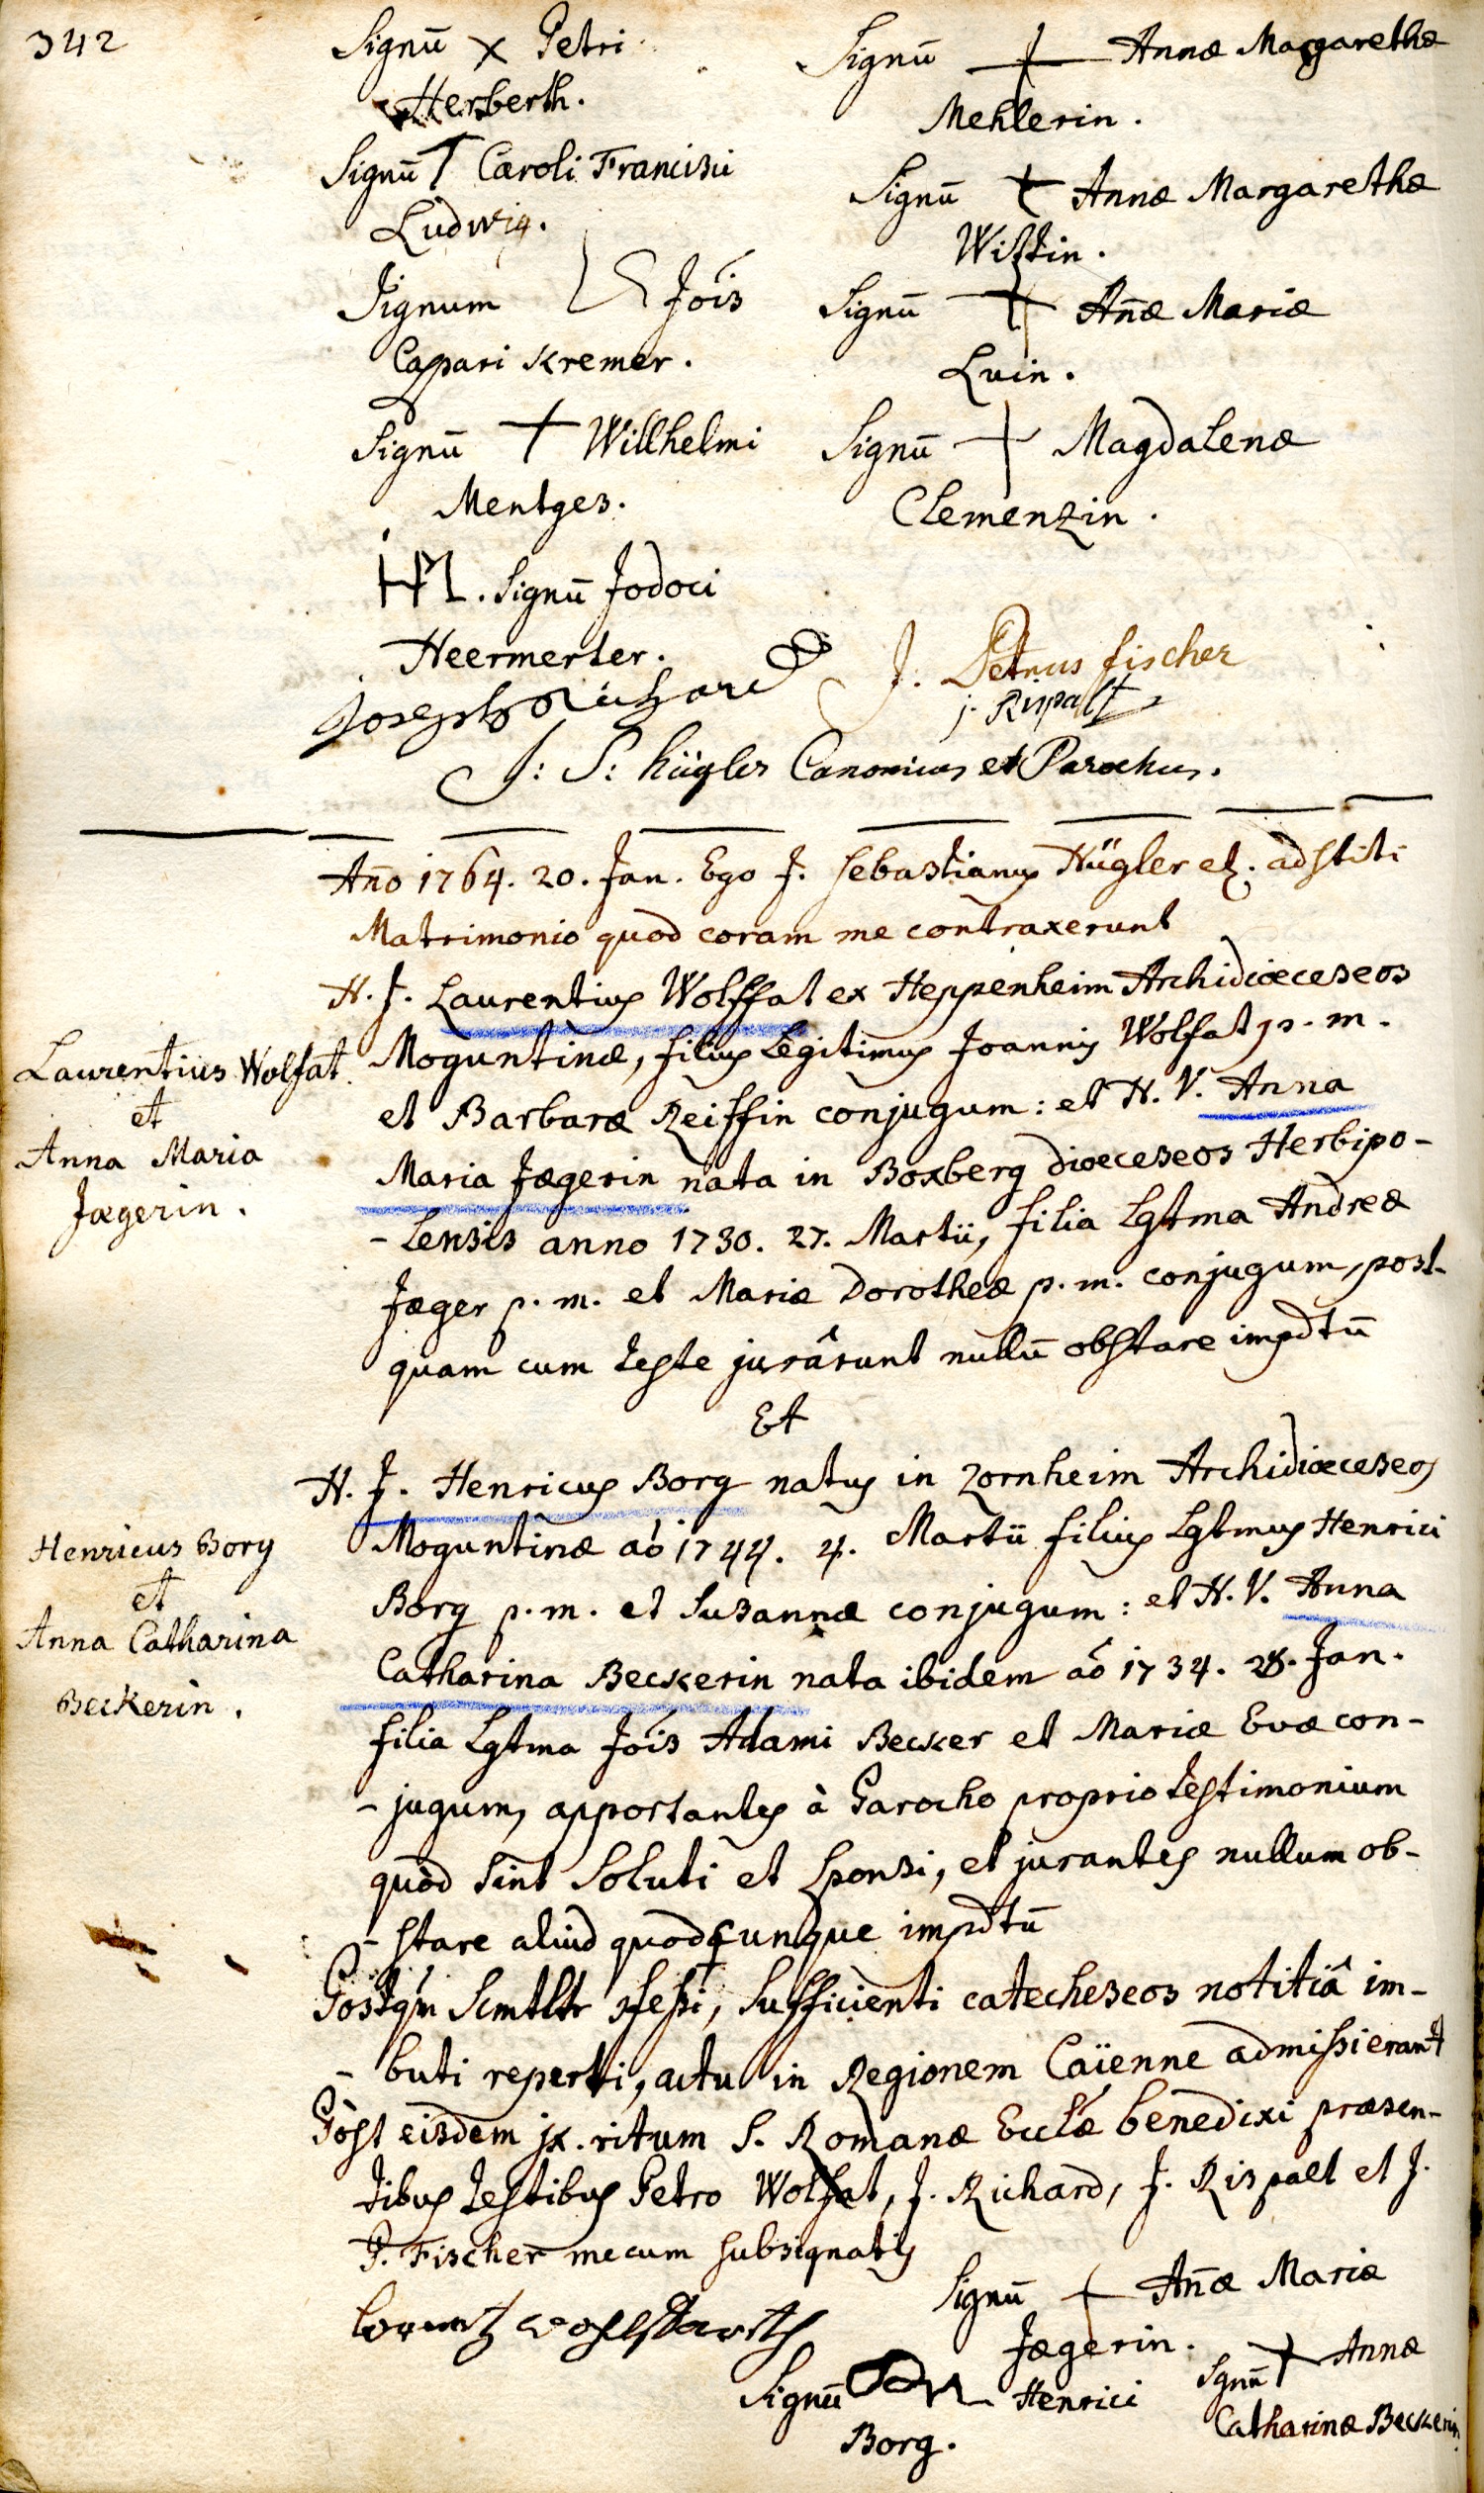 342
Signū x Petri
Herberth.
Signū T Caroli Francisci
Ludwig.
Signum Jõis
Caspari Kremer.
Signū + Willhelmi
Mentges.
HM. Signū Jodoci
Heermerter.
Signū + Annæ Margarethæ
Mehlerin.
Signū + Annæ Margarethæ
Wistin.
Signū + Añæ Mariæ
Luin.
Signū + Magdalenæ
Clemenzin.
Joseph Richard
J. Petrus fischer
j. Rispalt
J: S: hügler Canonicus et Parochus.
Año 1764. 20. Jan. Ego J. Sebastianus Hügler etc. adstiti
Matrimonio quod coram me contraxerunt
H. J. Laurentius Wolffat ex Heppenheim Archidiœceseos
Moguntinæ, filius Legitimus Joannis Wolfat p. m.
et Barbaræ Reiffin conjugum: et H. V. Anna
Maria Jægerin nata in Boxberg diœceseos Herbipo-
-lensis anno 1730. 27. Martii, filia Lgtma Andreæ
Jæger p. m. et Mariæ Dorotheæ p. m. conjugum, post-
quam cum teste jurârunt nullū obstare impdtū
Laurentius Wolfat
et
Anna Maria
Jægerin.
Et
H. J. Henricus Borg natus in Zornheim Archidiœceseos
Moguntinæ aõ 1744. 4. Martii filius Lgtmus Henrici
Borg p. m. et Susannæ conjugum: et H. V. Anna
Catharina Beckerin nata ibidem aõ 1734. 28. Jan.
filia Lgtma Jõis Adami Becker et Mariæ Evæ con-
-jugum, apportantes à Parocho proprio testimonium
quòd sint soluti et sponsi, et jurantes nullum ob-
-stare aliud quodcunque impdtū
Henricus Borg
et
Anna Catharina
Beckerin.
Postqm Scmtltr ɔfeßi, sufficienti catecheseos notitiâ im-
-buti reperti, actu in Regionem Caïenne admißi erant
Pòst eisdem jx. ritum S. Romanæ Ecclæ benedixi præsen-
tibus testibus Petro Wolfat, J. Richard, J. Rispalt et J.
P. Fischer mecum subsignatis
Lorentz wohlfarth
Signū + Añæ Mariæ
Jægerin.
Signū Henrici
Borg.
Sgnū + Annæ
Catharinæ Beckerin